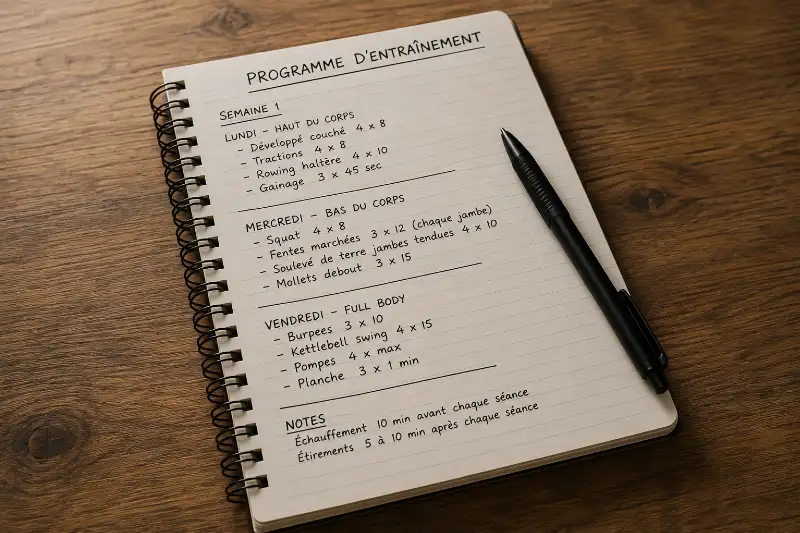 PROGRAMME D'ENTRAÎNEMENT
SEMAINE 1
LUNDI – HAUT DU CORPS
- Développé couché 4 x 8
- Tractions 4 x 8
- Rowing haltère 4 x 10
- Gainage 3 x 45 sec
MERCREDI – BAS DU CORPS
- Squat 4 x 8
- Fentes marchées 3 x 12 (chaque jambe)
- Soulevé de terre jambes tendues 4 x 10
- Mollets debout 3 x 15
VENDREDI – FULL BODY
- Burpees 3 x 10
- Kettlebell swing 4 x 15
- Pompes 4 x max
- Planche 3 x 1 min
NOTES
Échauffement 10 min avant chaque séance
Étirements 5 à 10 min après chaque séance